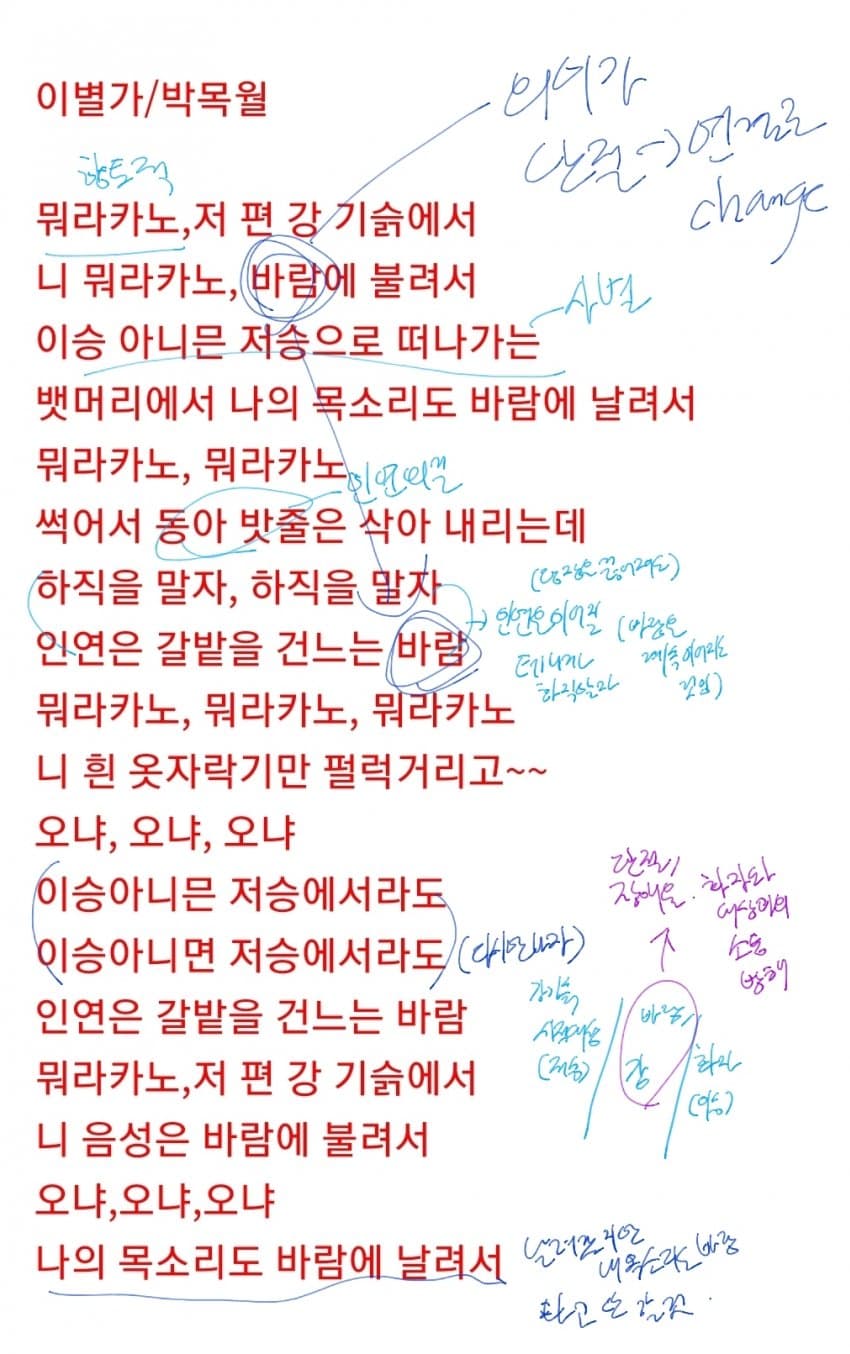 이별가/박목월
의미가
단절→연결로
change
향토적
뭐라카노,저 편 강 기슭에서
니 뭐라카노, 바람에 불려서
사별
이승 아니믄 저승으로 떠나가는
뱃머리에서 나의 목소리도 바람에 날려서
뭐라카노, 뭐라카노
인연의 길
썩어서 동아 밧줄은 삭아 내리는데
하직을 말자, 하직을 말자
인연은 갈밭을 건느는 바람
→인연은 이어질
테니까
하직말자
뭐라카노, 뭐라카노, 뭐라카노
니 흰 옷자락기만 펄럭거리고~~
오냐, 오냐, 오냐
이승아니믄 저승에서라도
이승아니면 저승에서라도
(다시만나자)
단절,
장애물. 화자와
대상과의
소통
방해
인연은 갈밭을 건느는 바람
강기슭
시적대상
(저승)
바람,
강
화자
(이승)
뭐라카노,저 편 강 기슭에서
니 음성은 바람에 불려서
오냐,오냐,오냐
나의 목소리도 바람에 날려서
내 목소리는 바람
타고 갈 것.